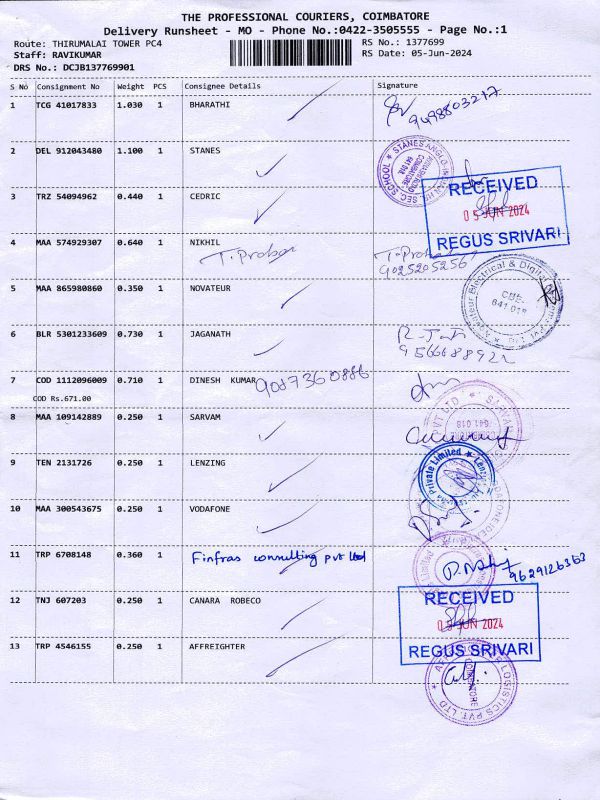 THE PROFESSIONAL COURIERS, COIMBATORE
Delivery Runsheet - MO - Phone No.:0422-3505555 - Page No.:1
Route: THIRUMALAI TOWER PC4 RS No.: 1377699
Staff: RAVIKUMAR RS Date: 05-Jun-2024
DRS No.: DCJB137769901
S No Consignment No Weight PCS Consignee Details Signature
1 TCG 41017833 1.030 1 BHARATHI
9498803217
2 DEL 912043480 1.100 1 STANES
3 TRZ 54094962 0.440 1 CEDRIC
RECEIVED
05 JUN 2024
REGUS SRIVARI
4 MAA 574929307 0.640 1 NIKHIL
9025205256
5 MAA 865980860 0.350 1 NOVATEUR
CBE.
641 018
6 BLR 5301233609 0.730 1 JAGANATH
7 COD 1112096009 0.710 1 DINESH KUMAR 9087360886
COD Rs.671.00
8 MAA 109142889 0.250 1 SARVAM
PVT LTD SARVA
641 018
9 TEN 2131726 0.250 1 LENZING
Private Limited Lenzing
10 MAA 300543675 0.250 1 VODAFONE
11 TRP 6708148 0.360 1 Finfras consulting pvt ltd
9629126363
12 TNJ 607203 0.250 1 CANARA ROBECO
RECEIVED
05 JUN 2024
REGUS SRIVARI
13 TRP 4546155 0.250 1 AFFREIGHTER
LOGISTICS PVT. LTD